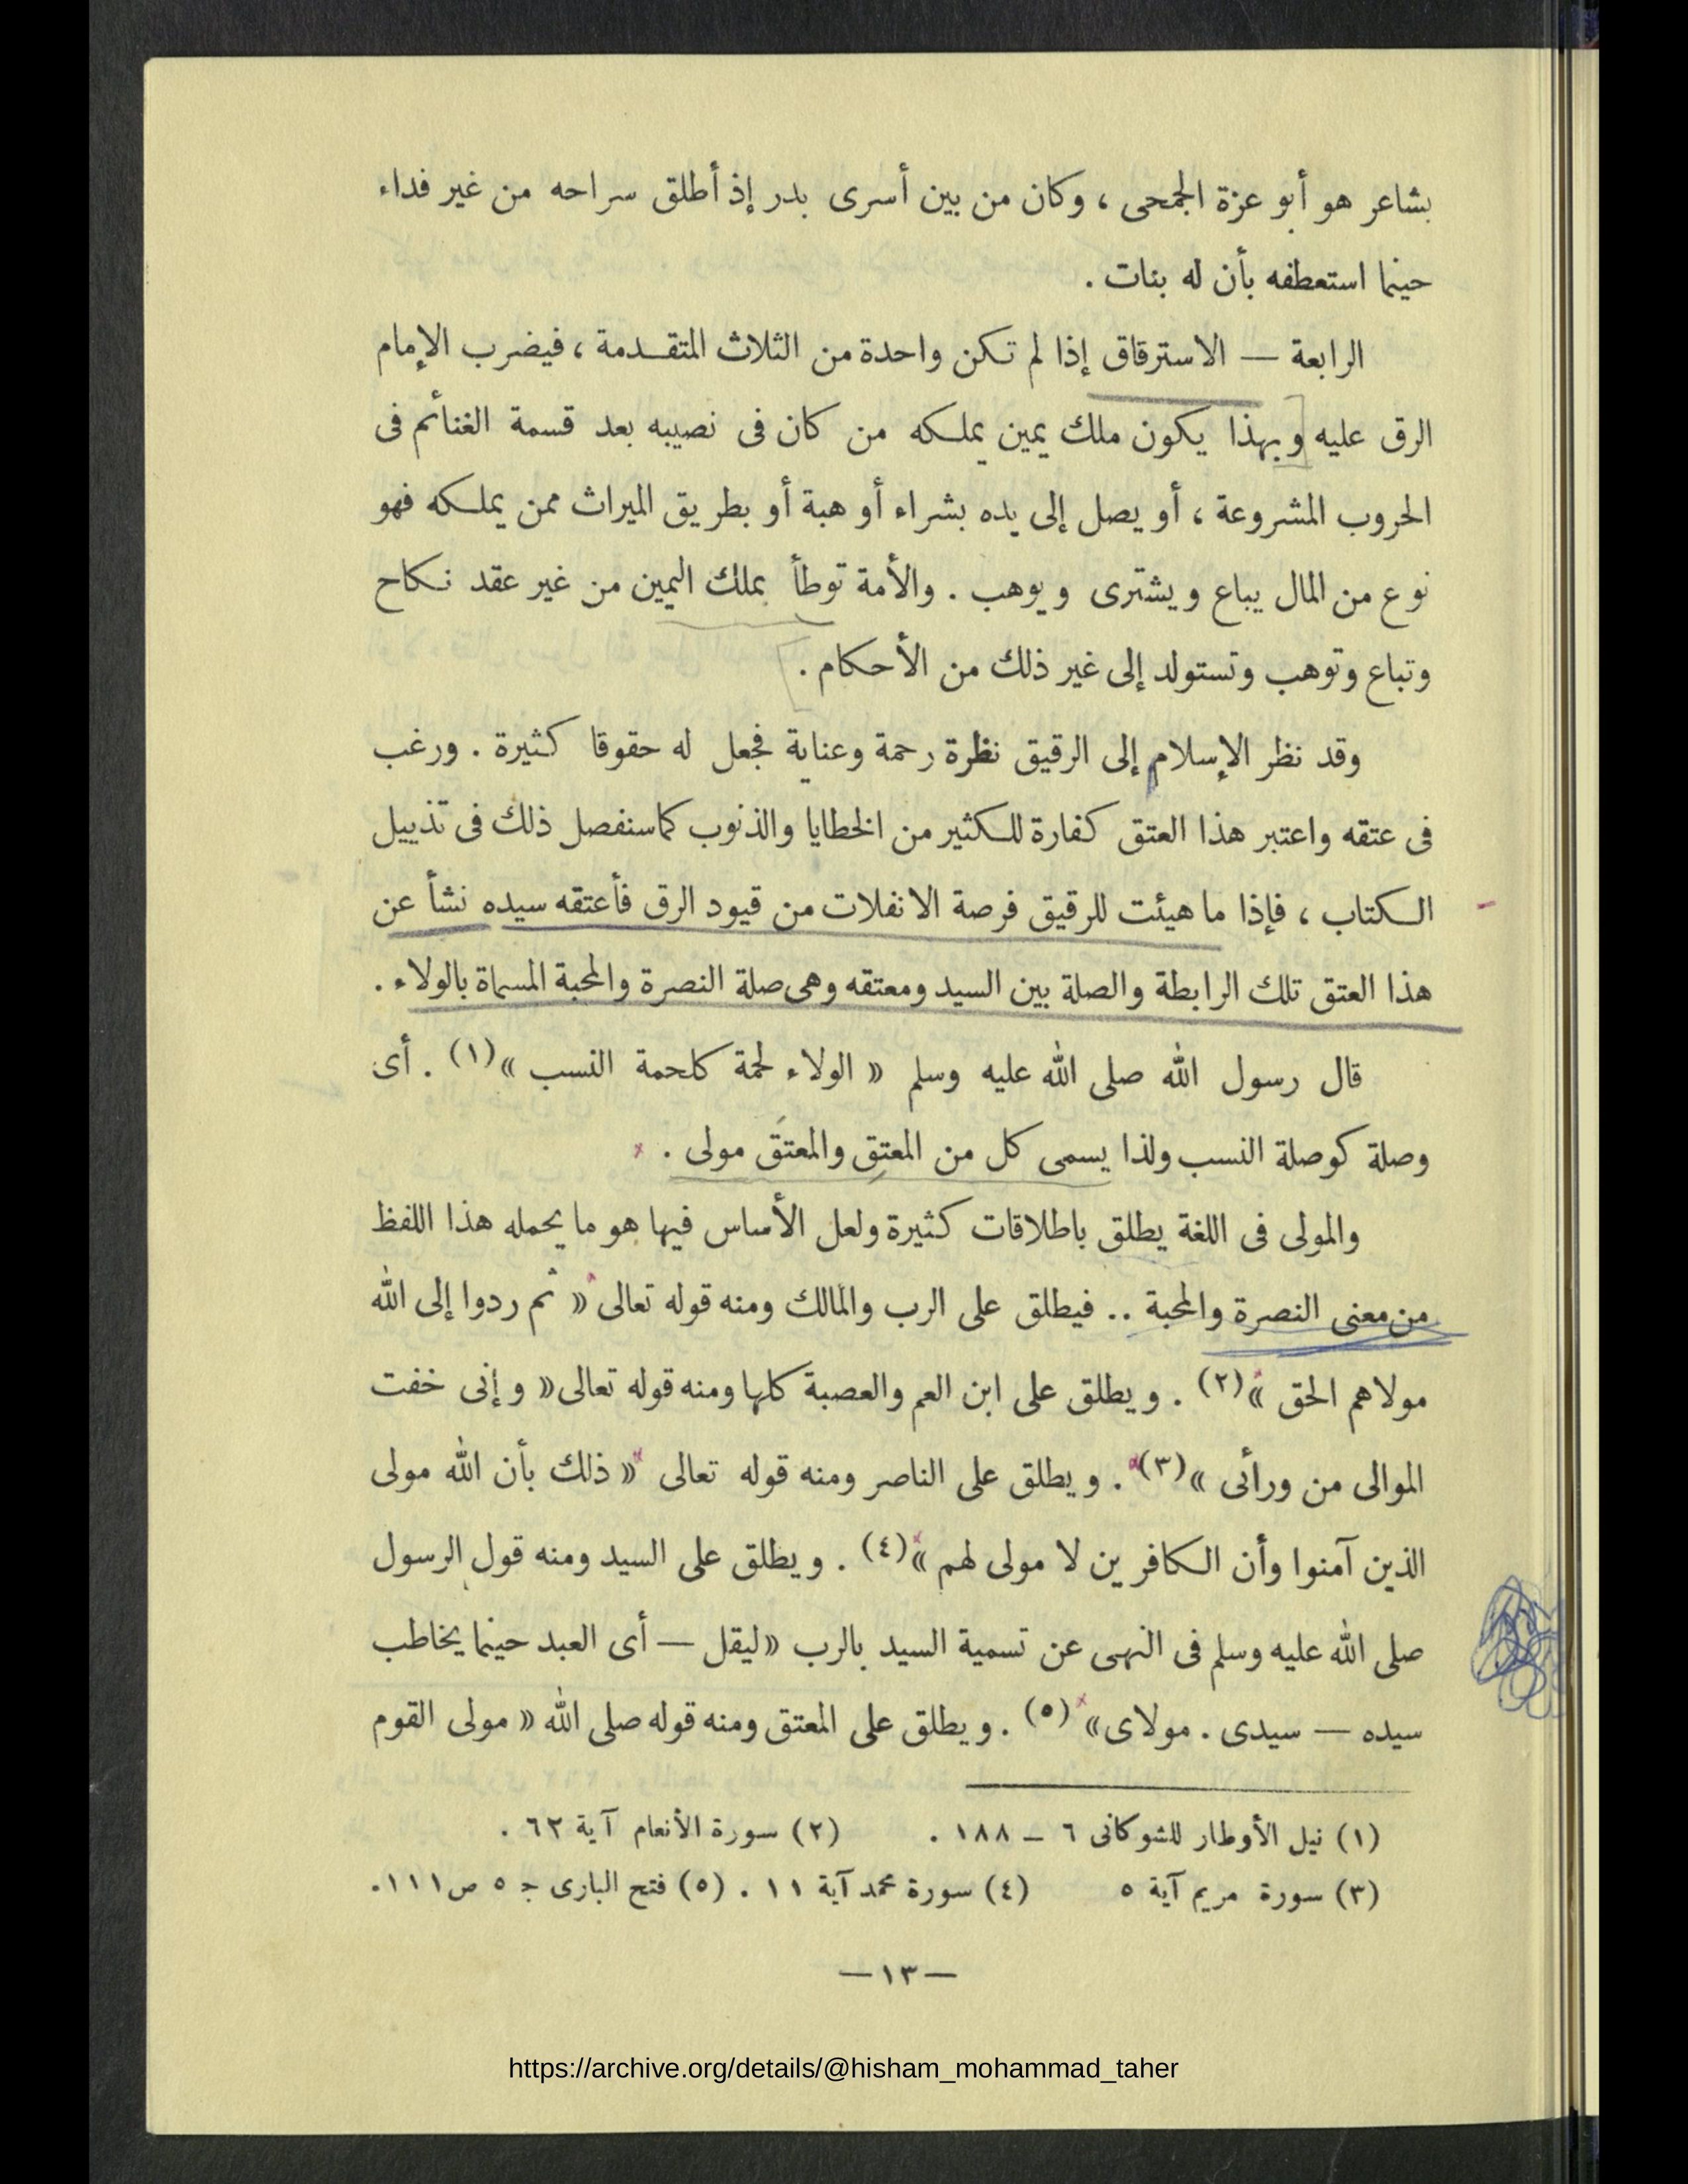 بشاعر هو أبو عزة الجمحى ، وكان من بين أسرى بدر إذ أطلق سراحه من غير فداء
حينما استعطفه بأن له بنات .
الرابعة — الاسترقاق إذا لم تكن واحدة من الثلاث المتقدمة ، فيضرب الإمام
الرق عليه وبهذا يكون ملك يمين يملكه من كان فى نصيبه بعد قسمة الغنائم فى
الحروب المشروعة ، أو يصل إلى يده بشراء أو هبة أو بطريق الميراث ممن يملكه فهو
نوع من المال يباع ويشترى ويوهب . والأمة توطأ بملك اليمين من غير عقد نكاح
وتباع وتوهب وتستولد إلى غير ذلك من الأحكام .
وقد نظر الإسلام إلى الرقيق نظرة رحمة وعناية فجعل له حقوقا كثيرة . ورغب
فى عتقه واعتبر هذا العتق كفارة للكثير من الخطايا والذنوب كما سنفصل ذلك فى تذييل
الكتاب ، فإذا ما هيئت للرقيق فرصة الانفلات من قيود الرق فأعتقه سيده نشأ عن
هذا العتق تلك الرابطة والصلة بين السيد ومعتقه وهى صلة النصرة والمحبة المسماة بالولاء .
قال رسول الله صلى الله عليه وسلم « الولاء لحمة كلحمة النسب »(١) . أى
وصلة كوصلة النسب ولذا يسمى كل من المعتِق والمعتَق مولى .
والمولى فى اللغة يطلق باطلاقات كثيرة ولعل الأساس فيها هو ما يحمله هذا اللفظ
من معنى النصرة والمحبة .. فيطلق على الرب والمالك ومنه قوله تعالى « ثم ردوا إلى الله
مولاهم الحق »(٢) . ويطلق على ابن العم والعصبة كلها ومنه قوله تعالى « وإنى خفت
الموالى من ورائى »(٣) . ويطلق على الناصر ومنه قوله تعالى « ذلك بأن الله مولى
الذين آمنوا وأن الكافرين لا مولى لهم »(٤) . ويطلق على السيد ومنه قول الرسول
صلى الله عليه وسلم فى النهى عن تسمية السيد بالرب « ليقل — أى العبد حينما يخاطب
سيده — سيدى . مولاى » (٥) . ويطلق على المعتق ومنه قوله صلى الله « مولى القوم
(١) نيل الأوطار للشوكانى ٦ – ١٨٨ . (٢) سورة الأنعام آية ٦٢ .
(٣) سورة مريم آية ٥ (٤) سورة محمد آية ١١ . (٥) فتح البارى ج ٥ ص ١١١ .
— ١٣ —
https://archive.org/details/@hisham_mohammad_taher